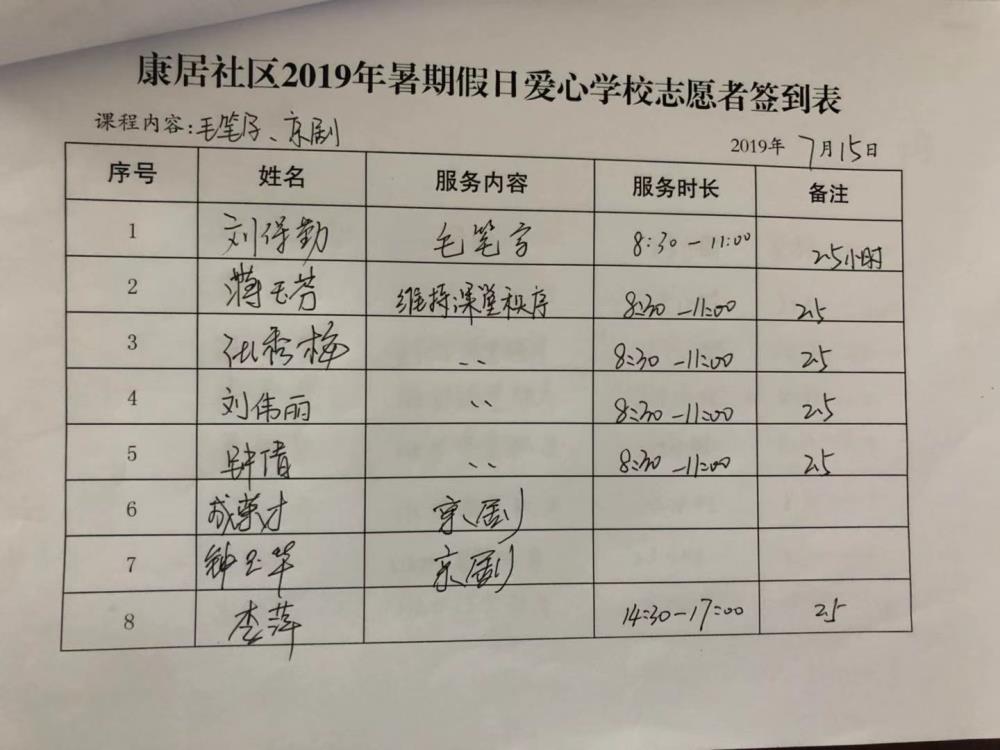 康居社区2019年暑期假日爱心学校志愿者签到表
课程内容:毛笔字、京剧
2019年 7月15日
序号 姓名 服务内容 服务时长 备注
1 刘保勤 毛笔字 8:30-11:00 2.5小时
2 蒋玉芳 维持课堂秩序 8:30-11:00 2.5
3 张秀梅 、、 8:30-11:00 2.5
4 刘伟丽 、、 8:30-11:00 2.5
5 钟倩 、、 8:30-11:00 2.5
6 成荣才 京剧
7 钟玉华 京剧
8 李萍 14:30-17:00 2.5